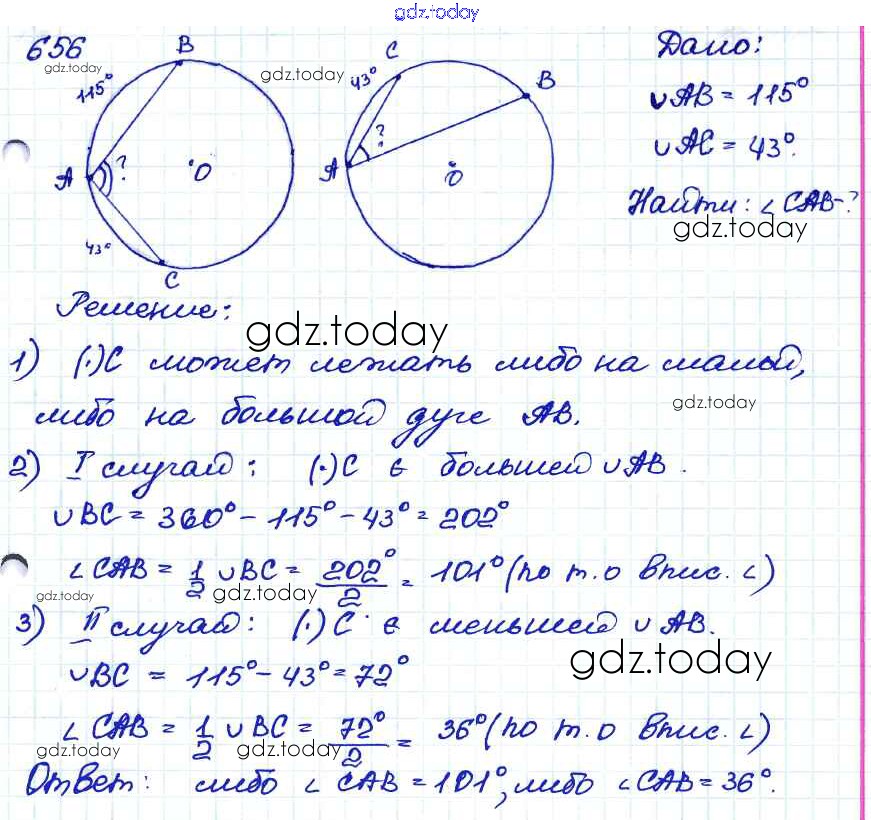 gdz.today
656
gdz.today
B
115°
A
?
O
43°
C
gdz.today
C
43°
B
?
A
O
Дано:
∪AB = 115°
∪AC = 43°.
Найти: ∠CAB-?
gdz.today
Решение:
gdz.today
1) (·)C может лежать либо на малой,
либо на большой дуге AB.
gdz.today
2) I случай: (·)C ∈ большей ∪AB.
∪BC = 360° - 115° - 43° = 202°
∠CAB = 1/2 ∪BC = 202°/2 = 101° (по т.о впис. ∠)
gdz.today
gdz.today
3) II случай: (·)C ∈ меньшей ∪AB.
∪BC = 115° - 43° = 72°
gdz.today
∠CAB = 1/2 ∪BC = 72°/2 = 36° (по т.о впис. ∠)
gdz.today
gdz.today
Ответ: либо ∠CAB = 101°, либо ∠CAB = 36°.